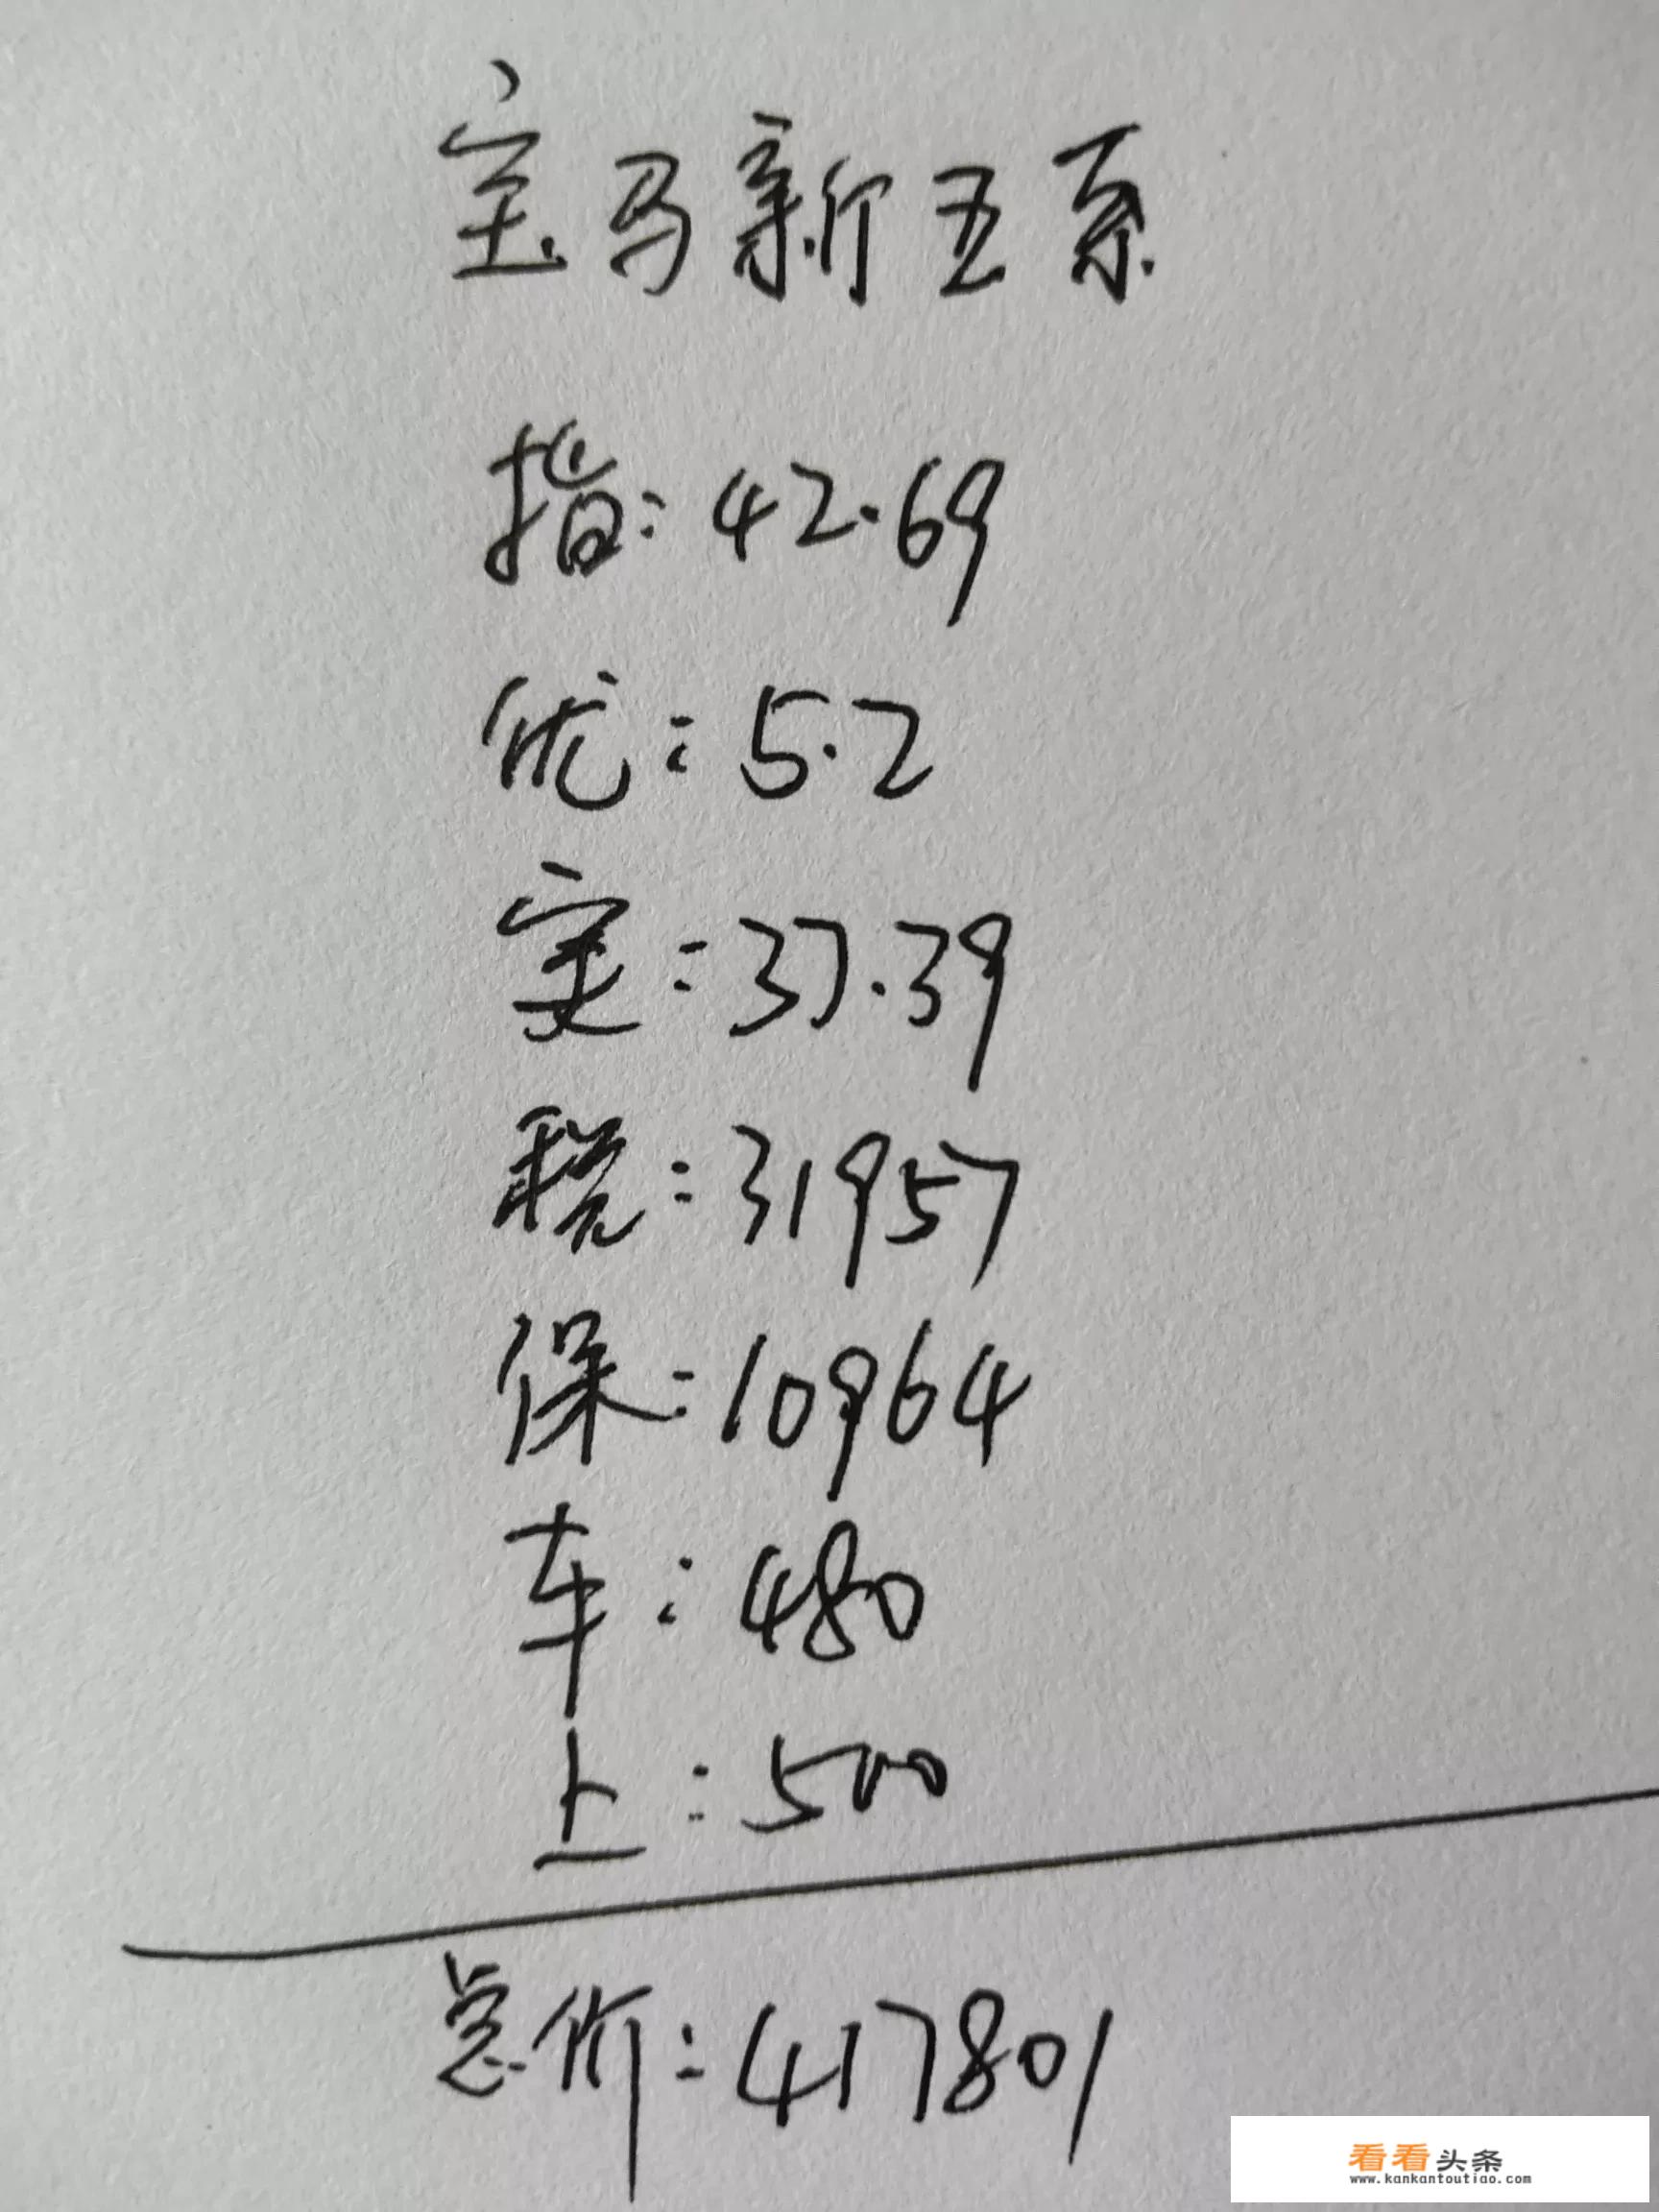 宝马新五系
指:42.69
优:5.2
实:37.39
税:31957
保:10964
车:480
上:500
总价:417801
看看头条
www.kankantoutiao.com